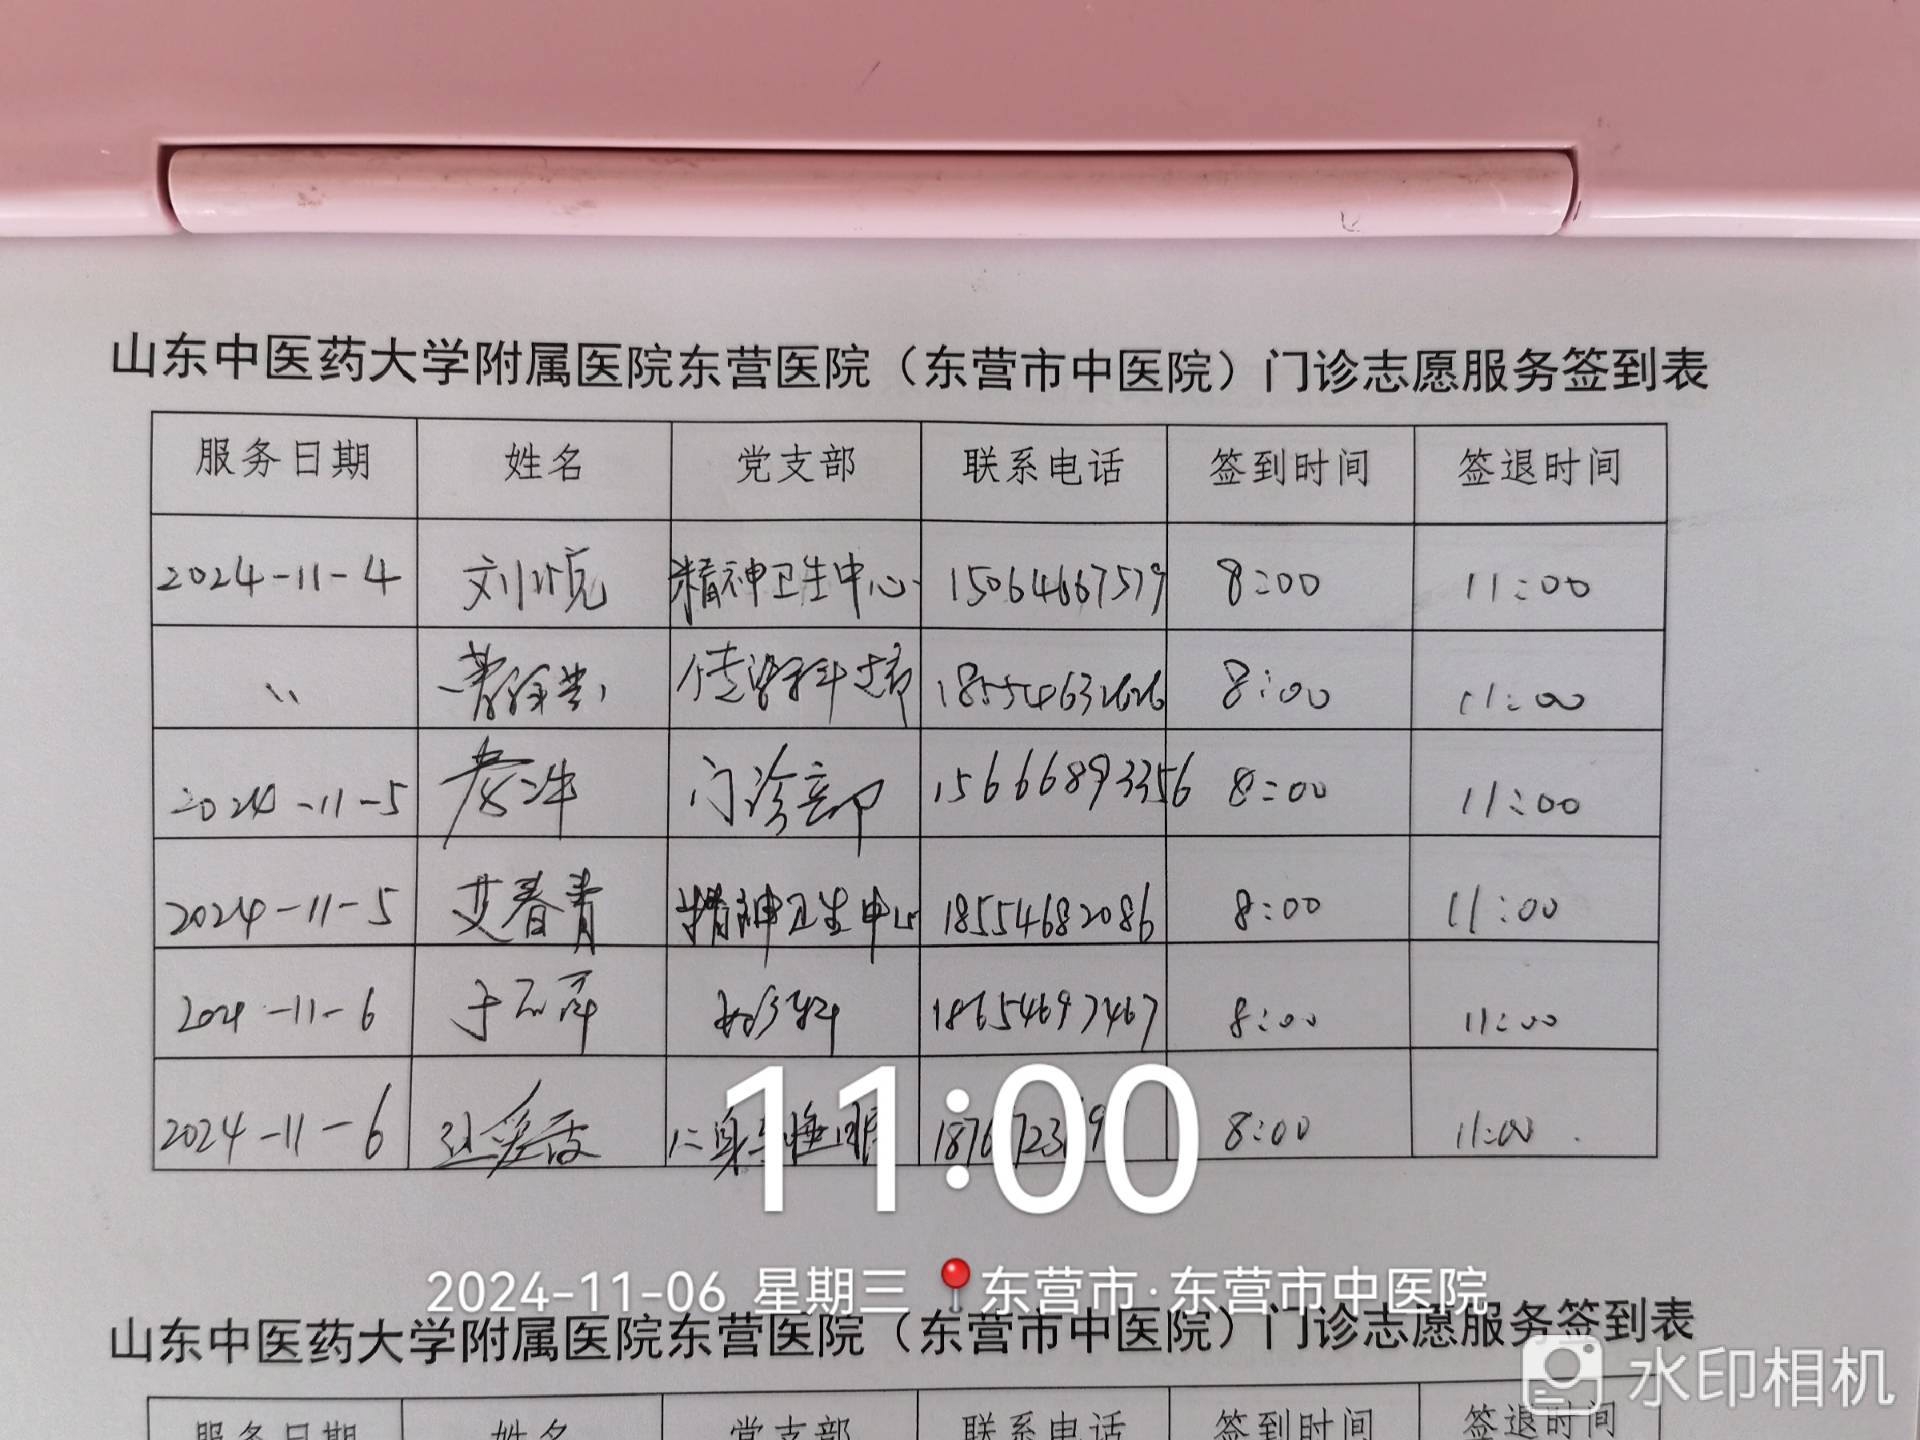 山东中医药大学附属医院东营医院（东营市中医院）门诊志愿服务签到表
服务日期 姓名 党支部 联系电话 签到时间 签退时间
2024-11-4 刘 精神卫生中心 15064667579 8:00 11:00
〃 传染科支部 18554632626 8:00 11:00
2024-11-5 门诊部 15666893356 8:00 11:00
2024-11-5 艾春青 精神卫生中心 18554682086 8:00 11:00
2024-11-6 于 18654697467 8:00 11:00
2024-11-6 8:00 11:00
11:00
2024-11-06 星期三 东营市·东营市中医院
山东中医药大学附属医院东营医院（东营市中医院）门诊志愿服务签到表
水印相机
服务日期 姓名 党支部 联系电话 签到时间 签退时间